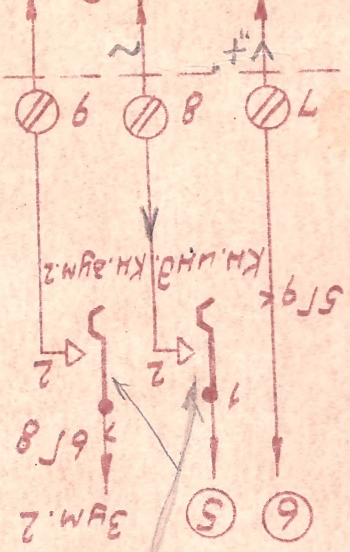 6 5 Зум.2
6Г8
1
2 2
5Г6
Кн.инд. Кн.зум.2
7 8 9
"+" ~